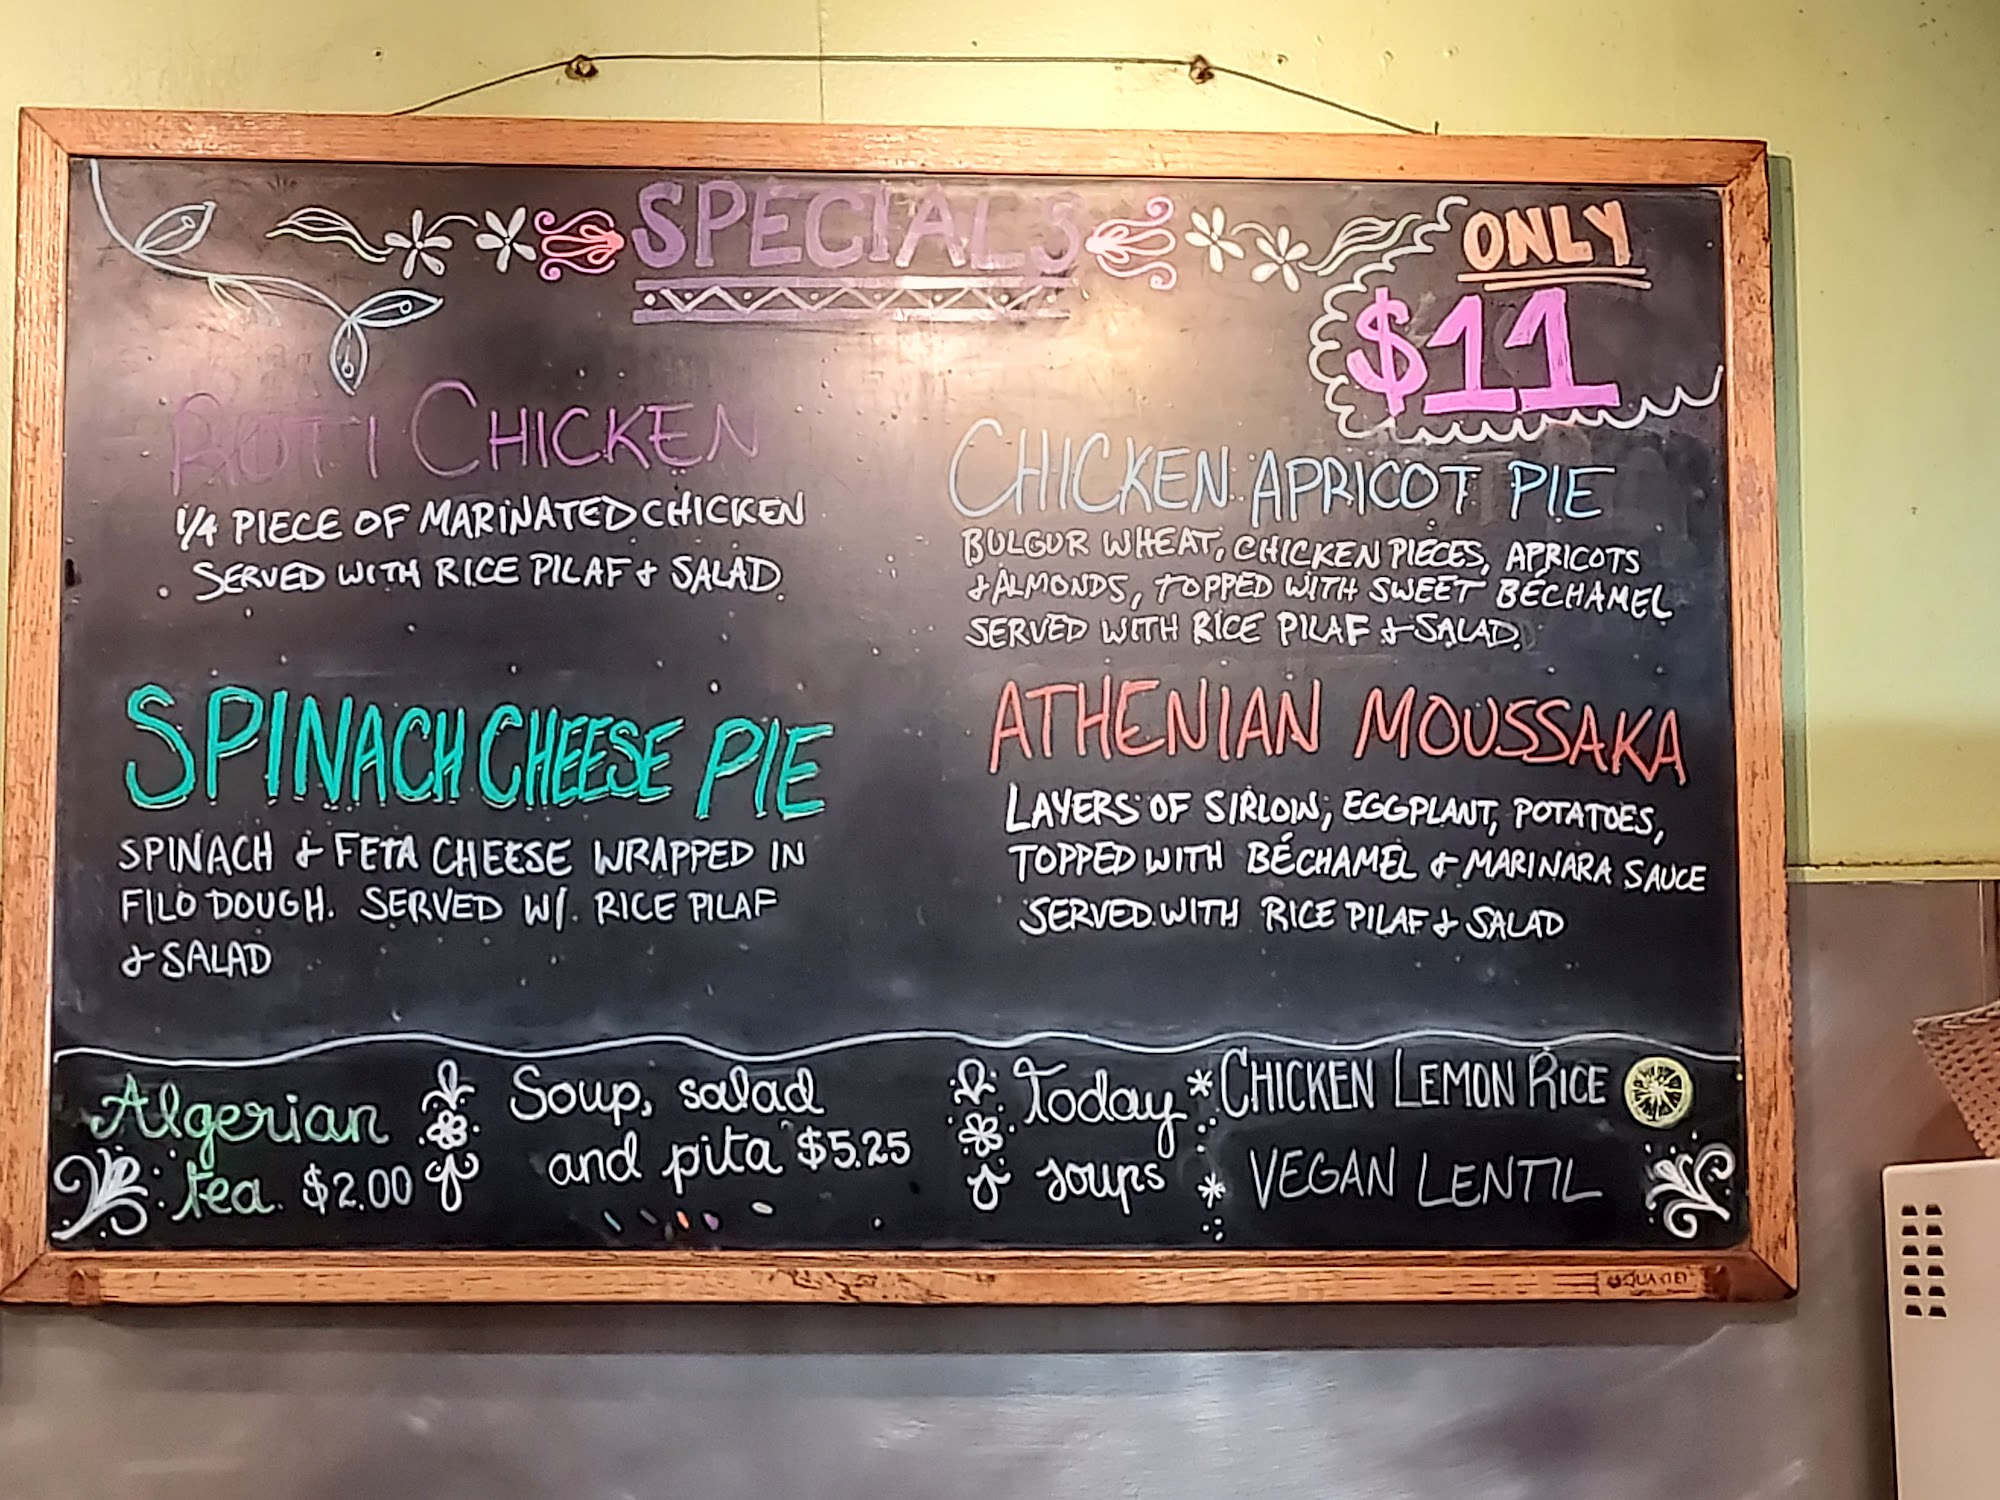 SPECIALS
ONLY
$11
ROTI CHICKEN
1/4 PIECE OF MARINATED CHICKEN
SERVED WITH RICE PILAF & SALAD.
CHICKEN APRICOT PIE
BULGUR WHEAT, CHICKEN PIECES, APRICOTS
& ALMONDS, TOPPED WITH SWEET BÉCHAMEL
SERVED WITH RICE PILAF & SALAD.
SPINACH CHEESE PIE
SPINACH & FETA CHEESE WRAPPED IN
FILO DOUGH. SERVED W/. RICE PILAF
& SALAD
ATHENIAN MOUSSAKA
LAYERS OF SIRLOIN, EGGPLANT, POTATOES,
TOPPED WITH BÉCHAMEL & MARINARA SAUCE
SERVED WITH RICE PILAF & SALAD
Algerian
tea. $2.00
Soup, salad
and pita $5.25
Today
soups
* CHICKEN LEMON RICE
* VEGAN LENTIL
QUARTET